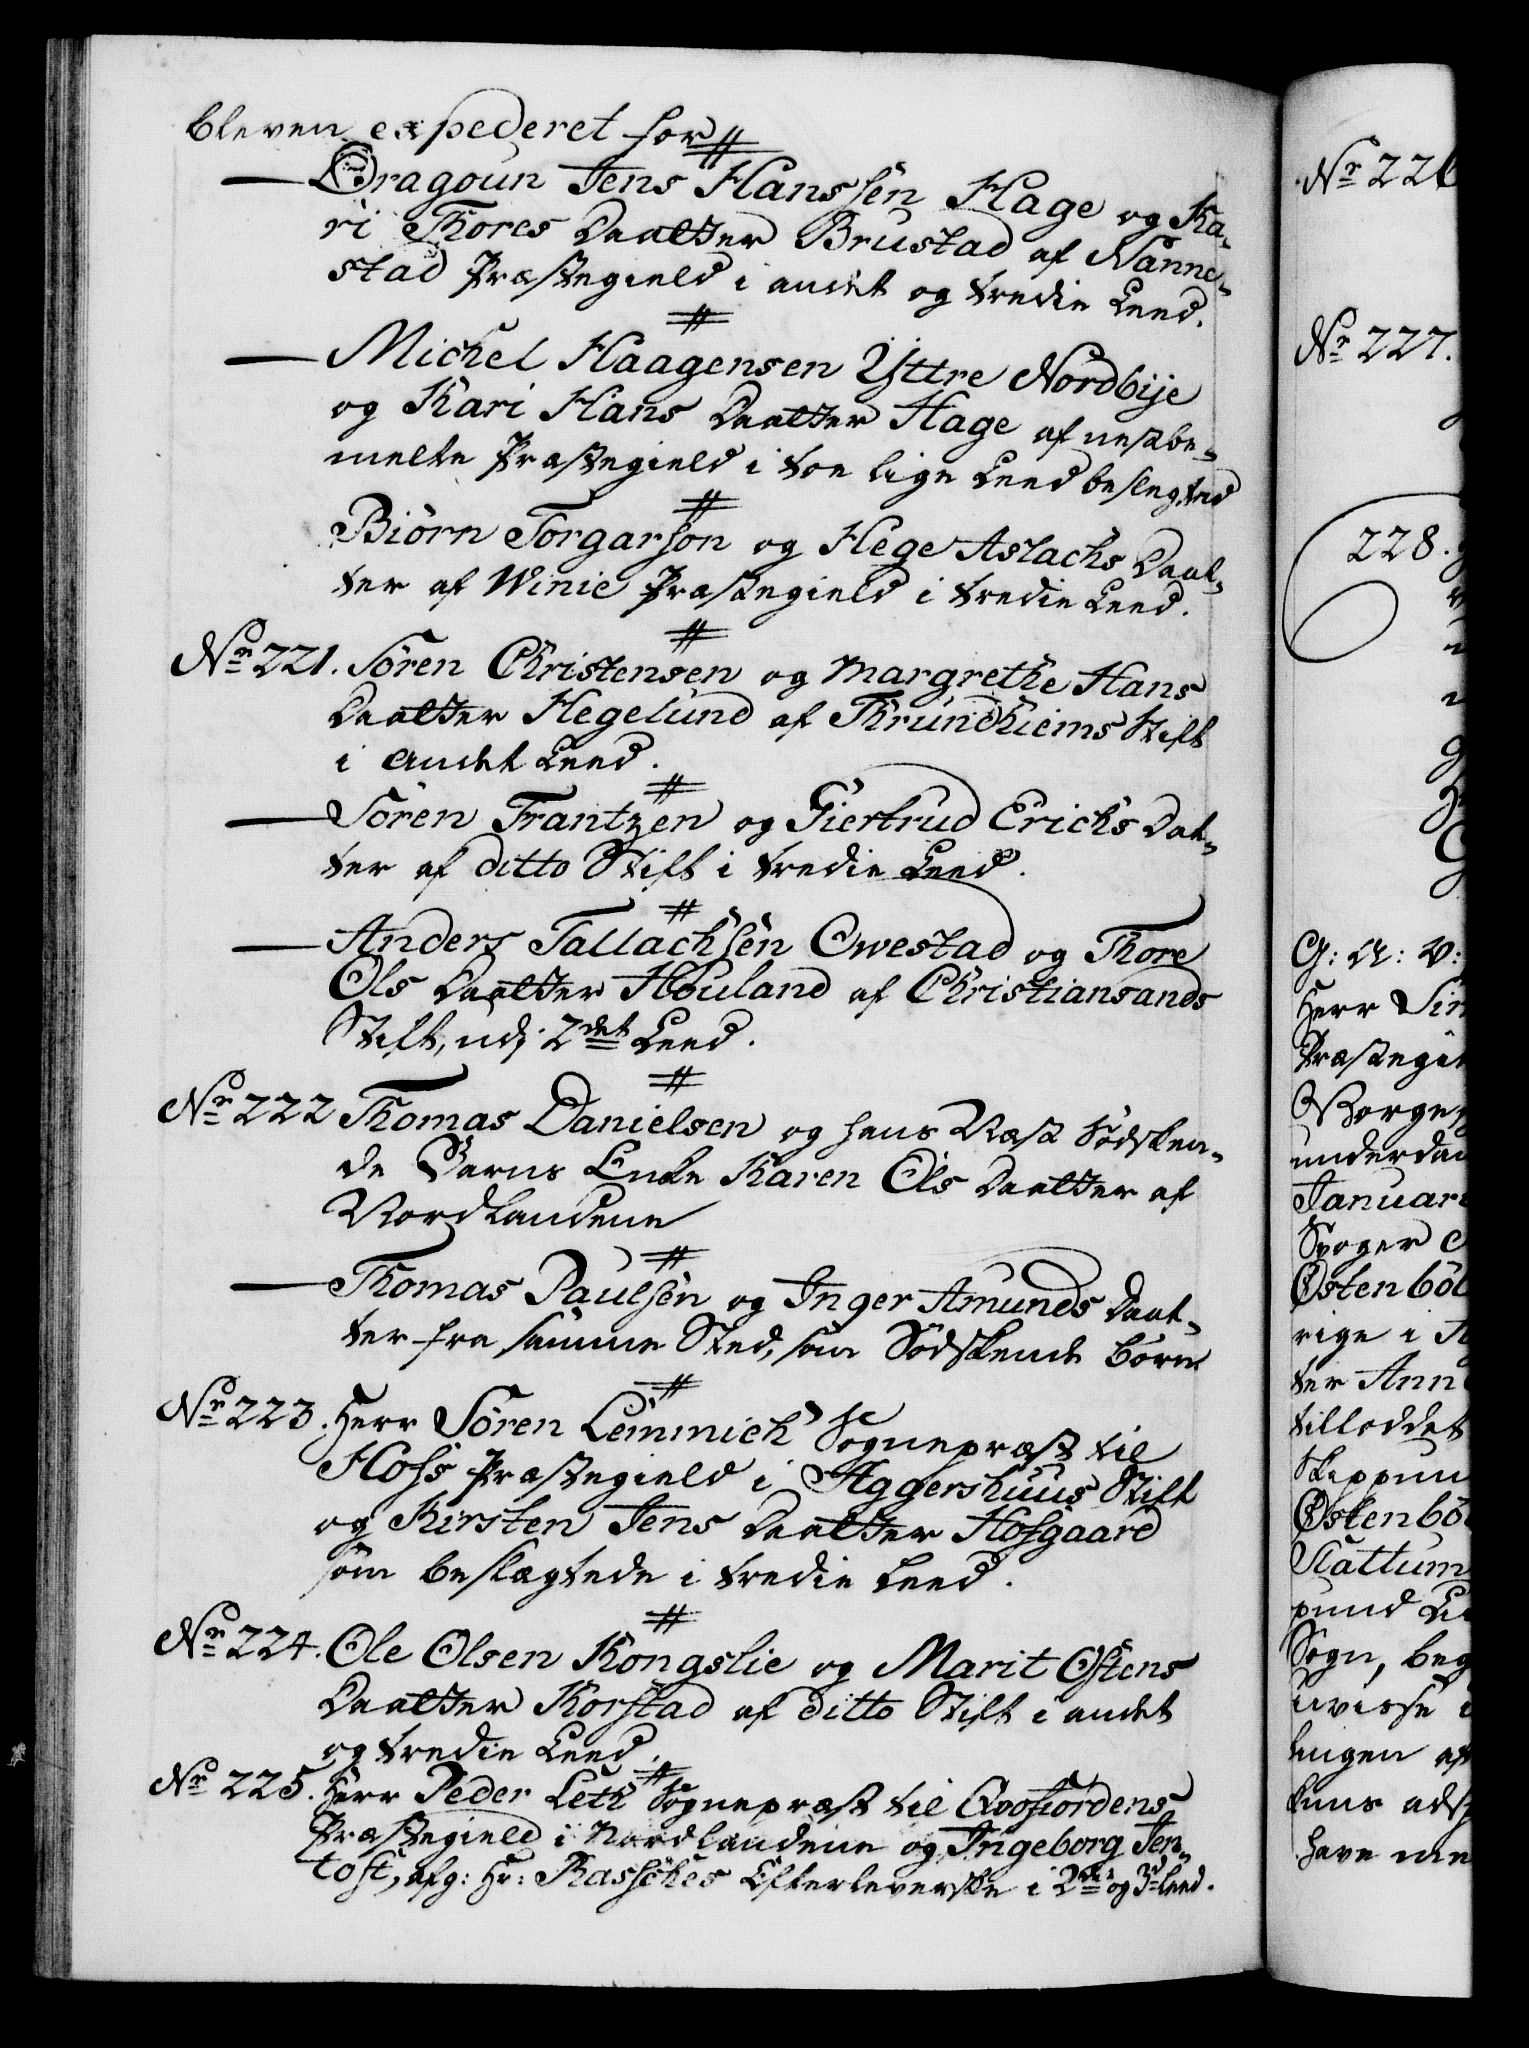 bleven expederet for
— Dragoun Jens Hanssen Hage og Ka-
ri Thores Daatter Brustad af Nanne-
stad Præstegield i andet og tredie Leed.
— Michel Haagensen Yttre Nordbÿe
og Kari Hans Daatter Hage af nestbe-
melte Præstegield i toe lige Leed beslegted
Biörn Torgarson og Hege Aslachs Daat-
ter af Winie Præstegield i tredie Leed.
No 221. Sören Christensen og Margrethe Hans
Daatter Hegelund af Thrundhiems Stift
i andet Leed.
— Sören Frantzen og Giertrud Erichs Dat-
ter af ditto Stift i tredie Leed.
— Anders Tallachsen Owestad og Thore
Ols Daatter Houland af Christiansands
Stift, udj 2det Leed.
No 222 Thomas Danielsen og hans Næst Södsken-
de Barns Enke Karen Ols Daatter af
Nordlandene
— Thomas Paulsen og Inger Amunds Daat-
ter fra samme Sted, som Södskende börn
No 223. Herr Sören Lemmich Sognepræst til
Hofs Præstegield i Aggershuus Stift
og Kirsten Jens Daatter Hofgaard
som beslægtede i tredie Leed.
No 224. Ole Olsen Kongslie og Marit Ostens
Daatter Korstad af ditto Stift i andet
og tredie Leed.
No 225. Herr Peder Leth Sognepræst til Qvofiordens
Præstegield i Nordlandene og Ingeborg Jen-
toft, afg: Hr: Rasches Efterleverske i 2det og 3die Leed.
No 226
No 227.
228.
G: A: V:
Herr Sin
Præstegie
Borge
underdan
Januari
Osten böl
rige i
ter Ann
tilloddet
Skippun
Osten bö
Slattum
pund
Sogn, beg
uvisse
lingen af
have me